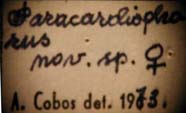 Paracardiopho
rus
nov. sp. ♀
A. Cobos det. 1973.